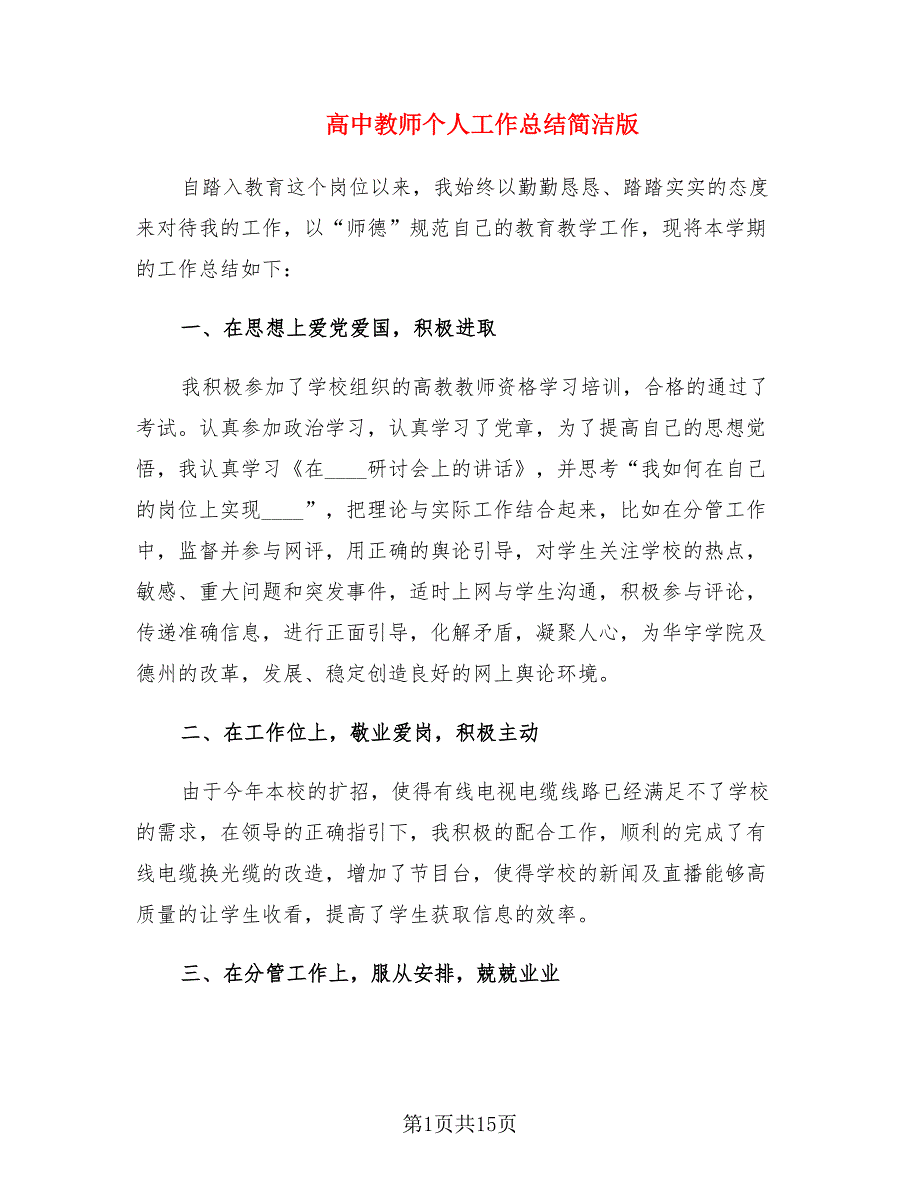 高中教师个人工作总结简洁版
自踏入教育这个岗位以来，我始终以勤勤恳恳、踏踏实实的态度
来对待我的工作，以“师德”规范自己的教育教学工作，现将本学期
的工作总结如下：
一、在思想上爱党爱国，积极进取
我积极参加了学校组织的高教教师资格学习培训，合格的通过了
考试。认真参加政治学习，认真学习了党章，为了提高自己的思想觉
悟，我认真学习《在____研讨会上的讲话》，并思考“我如何在自己
的岗位上实现____”，把理论与实际工作结合起来，比如在分管工作
中，监督并参与网评，用正确的舆论引导，对学生关注学校的热点，
敏感、重大问题和突发事件，适时上网与学生沟通，积极参与评论，
传递准确信息，进行正面引导，化解矛盾，凝聚人心，为华宇学院及
德州的改革，发展、稳定创造良好的网上舆论环境。
二、在工作位上，敬业爱岗，积极主动
由于今年本校的扩招，使得有线电视电缆线路已经满足不了学校
的需求，在领导的正确指引下，我积极的配合工作，顺利的完成了有
线电缆换光缆的改造，增加了节目台，使得学校的新闻及直播能够高
质量的让学生收看，提高了学生获取信息的效率。
三、在分管工作上，服从安排，兢兢业业
第1页共15页